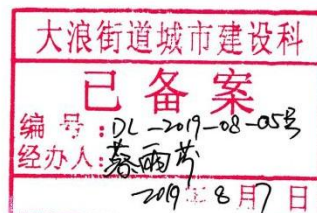 大浪街道城市建设科
已备案
编号:DL-2019-08-05号
经办人:
2019年8月7日